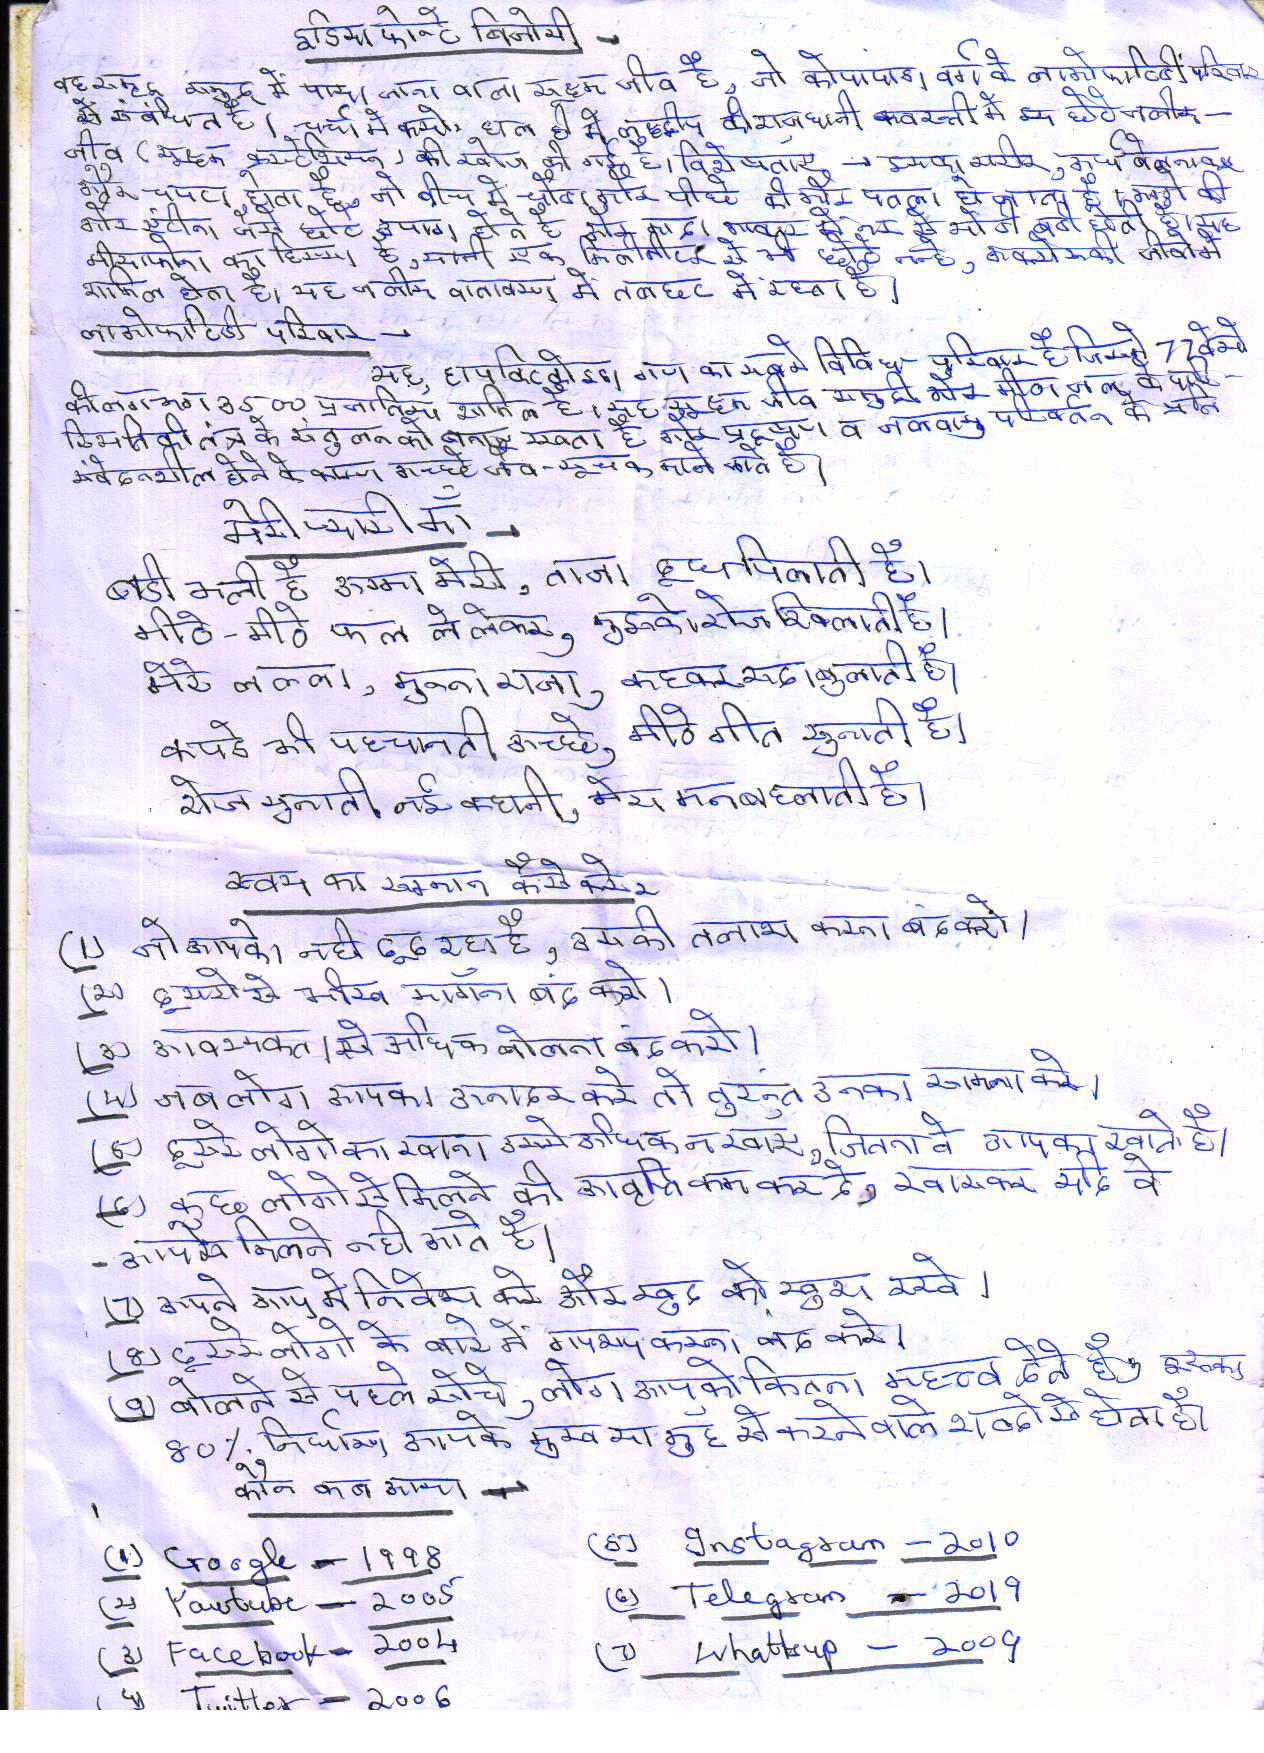 इंडियाफोन्टे बिजोयी →
यह समृद्ध समुद्र में पाया जाने वाला सूक्ष्म जीव है, जो कोपापाडा वर्ग के लाओफोंटिडी परिवार
से संबंधित है। चर्चा में क्यो? हाल ही में लक्षद्वीप की राजधानी कवरत्ती में इस छोटे जलीय-
जीव (सूक्ष्म क्रस्टेशियन) की खोज की गई है। विशेषताएं → इसका शरीर, अर्ध बेलनाकार
और चपटा होता है, जो बीच में चौडा और पीछे की ओर पतला हो जाता है। आगे की
ओर एंटीना जैसे छोटे उपांग होते है और मादा आकार में नर से भी बडी होती है। यह
मीयोफोना का हिस्सा है, यानी एक मिलीमीटर से भी छोटे नन्हे, अकशेरूकी जीवो में
शामिल होता है। यह जलीय वातावरण में तलछट में रहता है।
लाओफोंटिडी परिवार →
यह, हार्पेक्टिकोइडा गण का सबसे विविध परिवार है जिसमे 77 वंशो
की लगभग 3500 प्रजातिया शामिल है। यह सूक्ष्म जीव समुद्री और मीठा जल के पारि-
स्थितिकी तंत्र के संतुलन को बनाए रखता है और प्रदूषण व जलवायु परिवर्तन के प्रति
संवेदनशील होने के कारण अच्छे जैव-सूचक माने जाते है।
मेरी प्यारी माँ →
बडी भली है अम्मा मेरी, ताजा दूध पिलाती है।
मीठे-मीठे फल ले लेकर, मुझको रोज खिलाती है।
मेरे लल्ला, मुन्ना राजा, कहकर सदा बुलाती है।
कपडे भी पहचानती अच्छे, मीठे गीत सुनाती है।
रोज सुनाती नई कहानी, मेरा मन बहलाती है।
स्वयं का सम्मान कैसे करे?
(1) जो आपको नही ढूढ रहा है, उसकी तलाश करना बंद करो।
(2) दूसरो से भीख मागँना बंद करो।
(3) आवश्यकता से अधिक बोलना बंद करो।
(4) जब लोग आपका अनादर करे तो तुरन्त उनका सामना करे।
(5) दूसरे लोगो का खाना उससे अधिक न खाए, जितना वे आपका खाते है।
(6) कुछ लोगो से मिलने की आवृत्ति कम कर दे, खासकर यदि वे
- आपसे मिलने नही आते है।
(7) अपने आप मे निवेश करे और खुद को खुश रखे।
(8) दूसरे लोगो के बारे में गपशप करना बंद करे।
(9) बोलने से पहले सोंचे, लोग आपको कितना महत्व देते है, इसका
80% निर्धारण आपके मुख या मुहँ से करने वाले शब्दो से होता है।
कौन कब आया →
(1) Google - 1998
(2) Youtube - 2005
(3) Facebook - 2004
(4) Twitter - 2006
(5) Instagram - 2010
(6) Telegram - 2019
(7) Whattsup - 2009